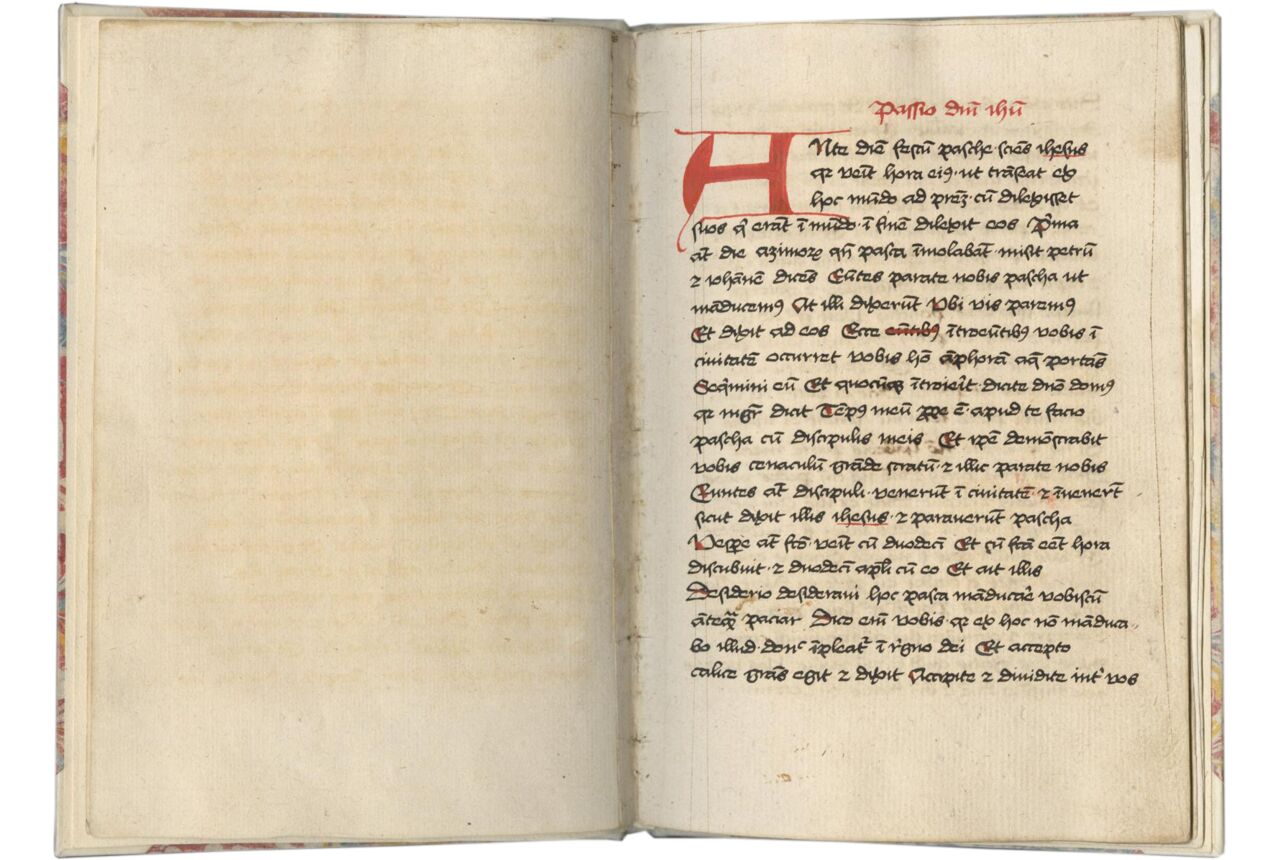 Passio dnī ihū
ANte diē festū pasche sciēs ihesus
qꝛ veīt hora eiꝰ · ut trāseat ex
hoc mūdo ad prēꝫ · cū dilexisset
suos q̄ erāt ī mūdo · ī finē dilexit eos · Pͥma
āt die azimoꝝ qn̄ pasca īmolabāt · misit petrū
⁊ iohānē dicēs Eūtes parate nobis pascha ut
māducemꝰ At illi dixerūt Vbi vis paremꝰ
Et dixit ad eos Ecce eūtibꝰ ītroeūtibꝰ vobis ī
ciuitatē occurret vobis hō āphorā aq̄ portās
Seqͥmini eū Et quocūqꝫ ītroierīt · dicite dnō domꝰ
qꝛ mgr̄ dicit Tēpꝰ meū ꝓpe ē · apud te facio
pascha cū discipulis meis Et ipē demōstrabit
vobis cenaculū grāde stratū · ⁊ illic parate nobis
Euntes āt discipuli · venerūt ī ciuitatē · ⁊ īvenerūt
sicut dixit illis ihesus · ⁊ paraverūt pascha
Vesꝑe āt fcō · veīt cū duodecī Et cū fcā eēt hora
discubuit · ⁊ duodecī apl̄i cū eo Et ait illis
Desiderio desideravi hoc pasca māducaͬe vobiscū
āteqᷓ paciar Dico eīn vobis · qꝛ ex hoc nō māduca-
bo illud · donͨ īpleatᷣ ī rͤgno dei Et accepto
calice grās egit ⁊ dixit Accipite ⁊ dividite intͬ vos